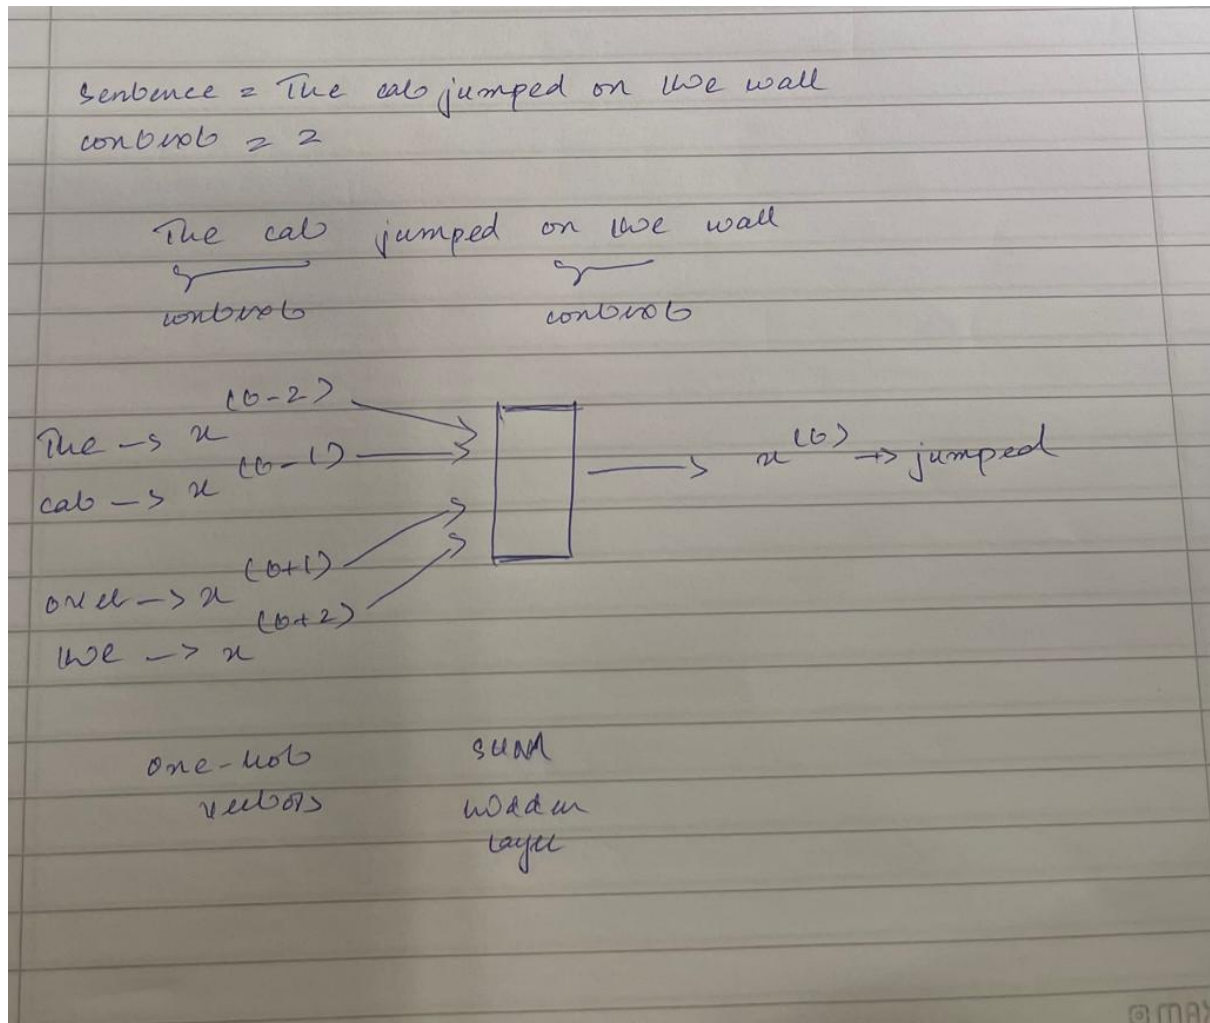 sentence = The cat jumped on the wall
context = 2
The cat jumped on the wall
context context
The -> x^(t-2)
cat -> x^(t-1)
-> x^(t) -> jumped
-> x^(t+1)
the -> x^(t+2)
one-hot sum
vectors hidden
layer
MAX